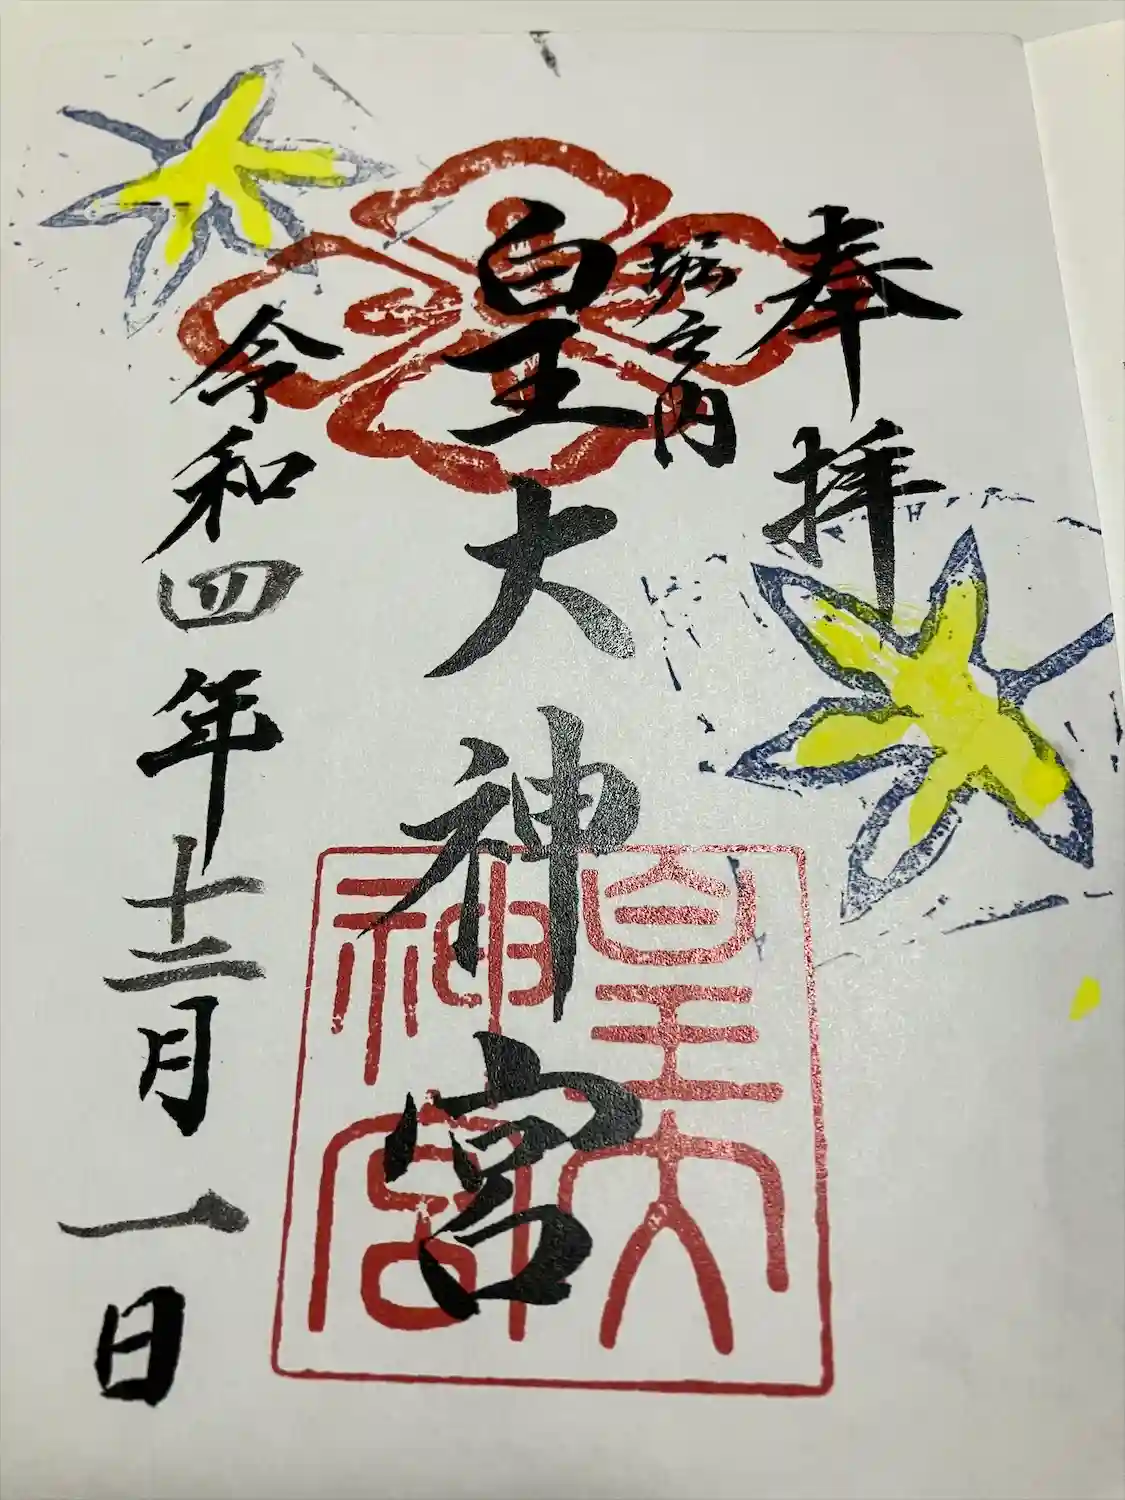 奉拝
堀之内
皇大神宮
皇大
神宮
令和四年十二月一日